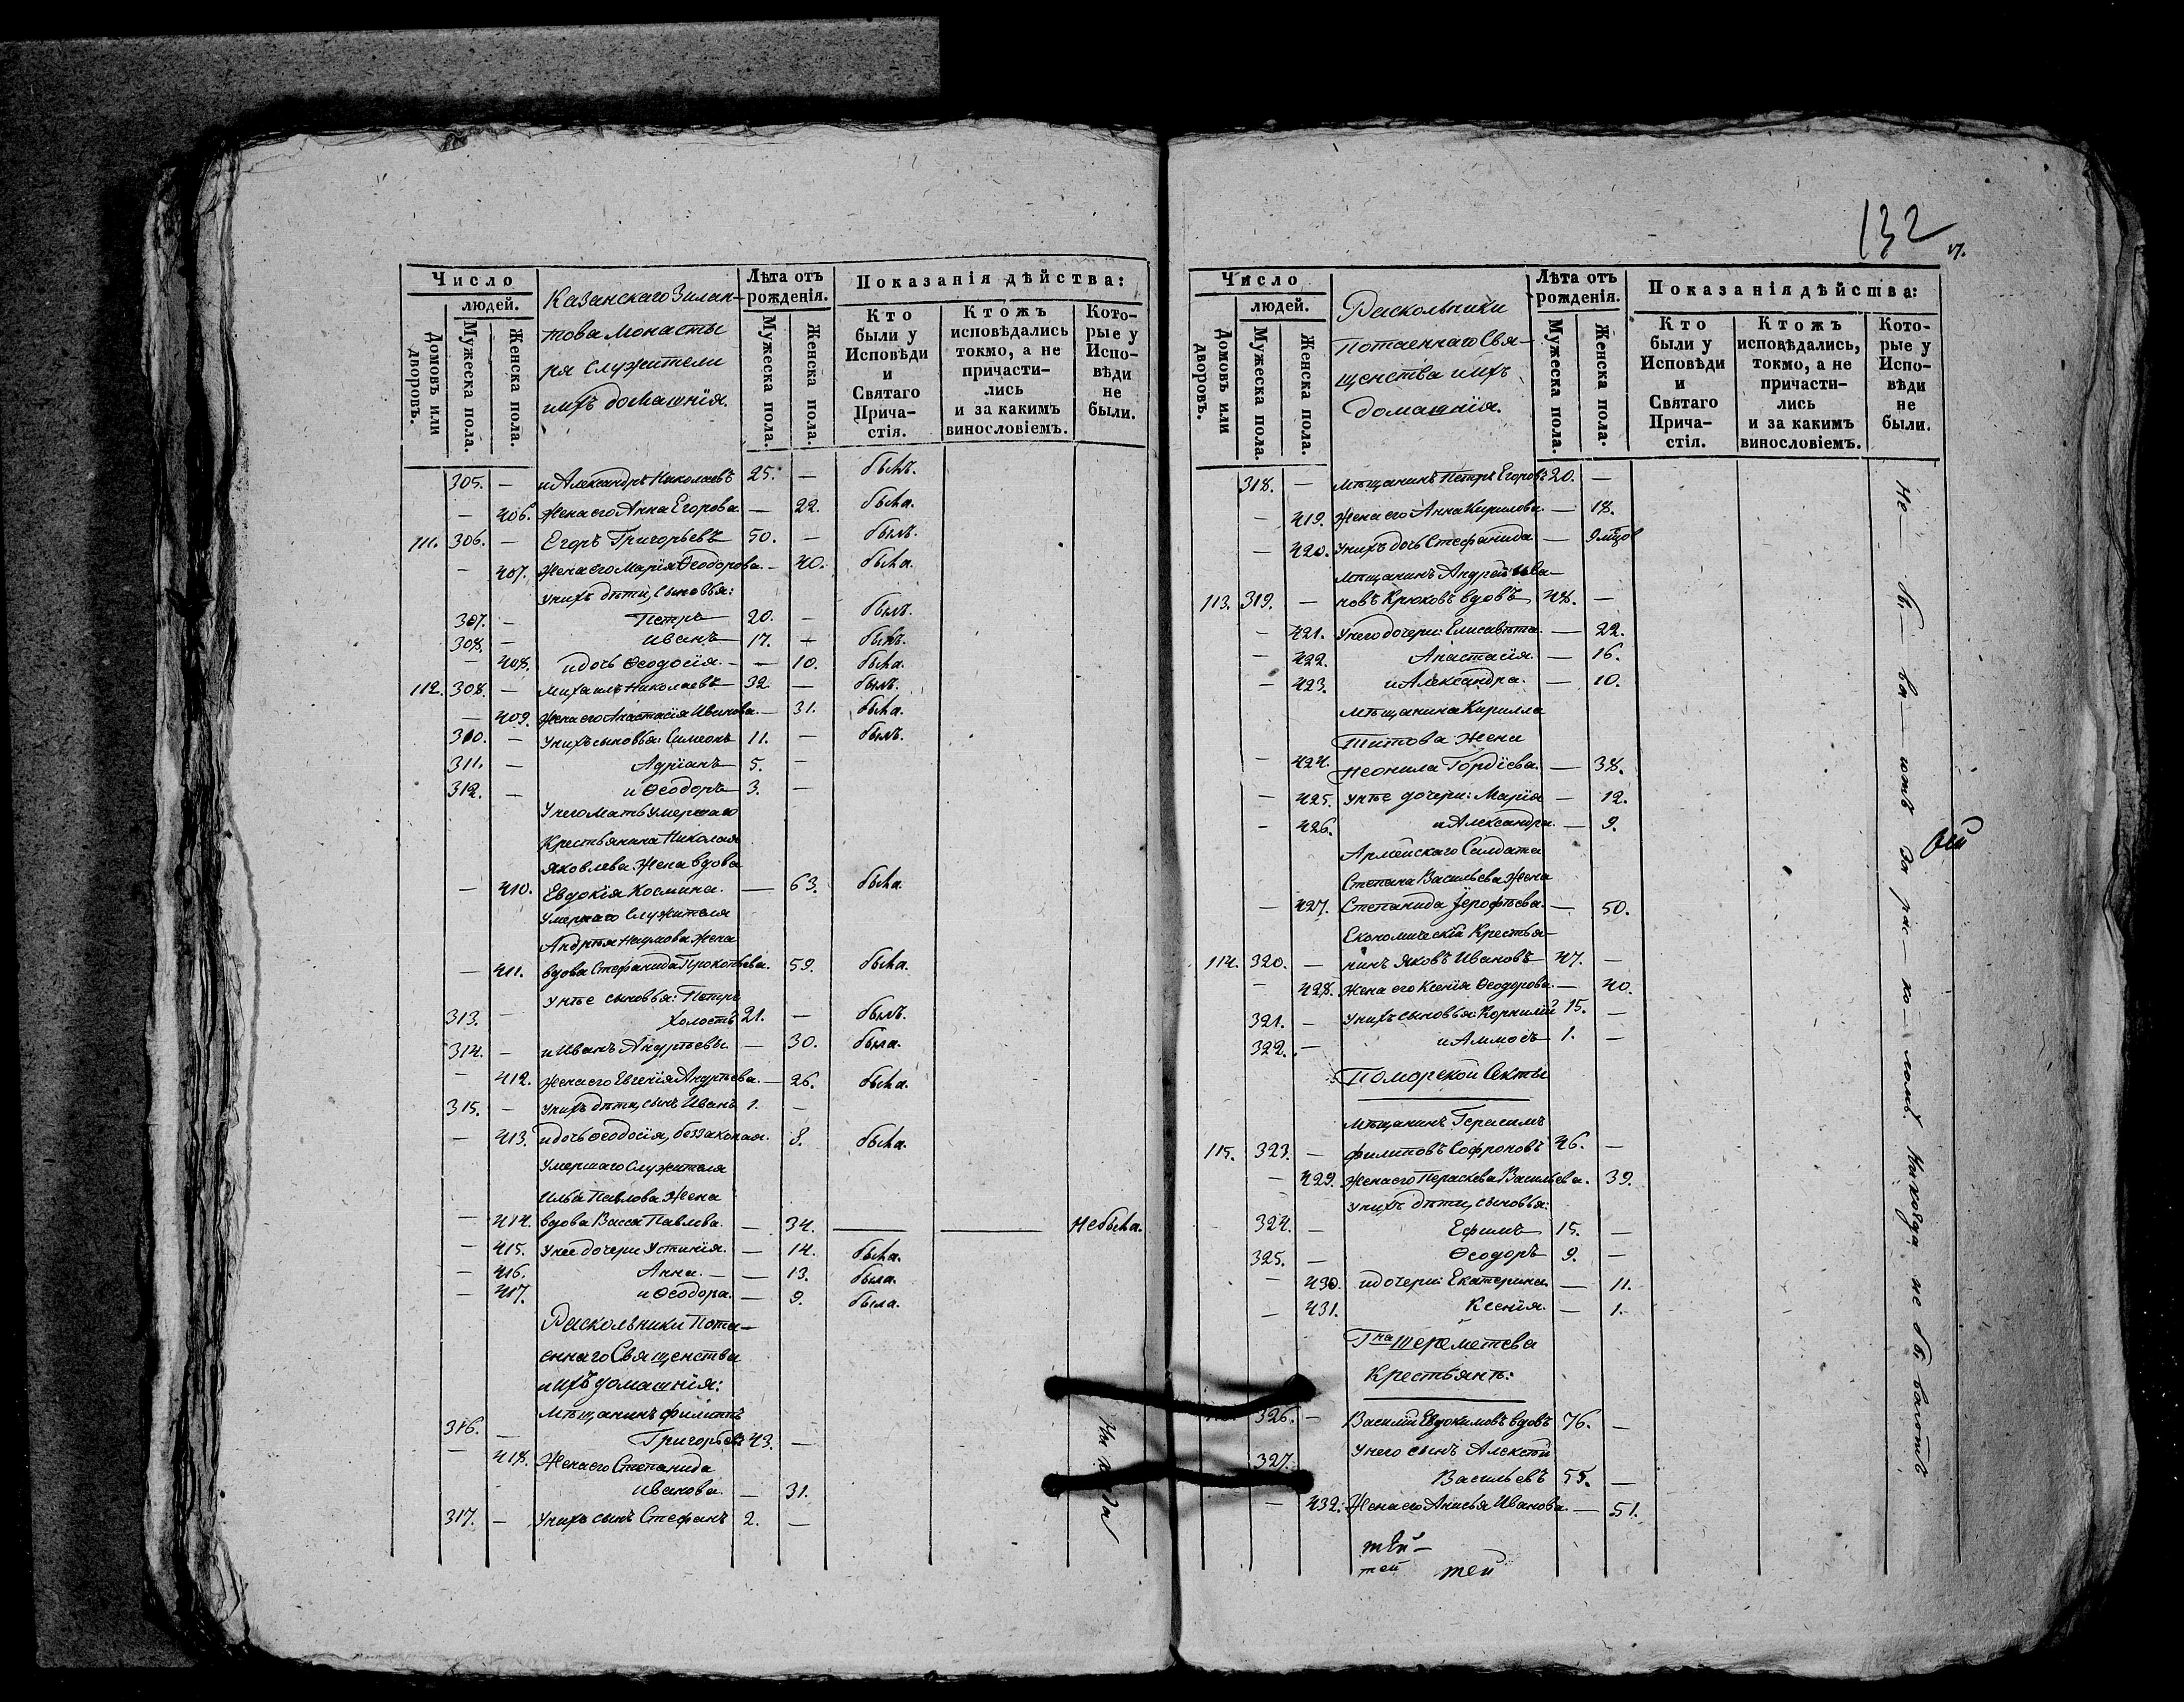 Число
людей.
Домовъ или дворовъ.
Мужеска пола.
Женска пола.
Казанскаго Зилан-
това Монасты
ря Служители
ихъ домашнія.
Лѣта отъ рожденія.
Мужеска пола.
Женска пола.
Показанія дѣйства:
Кто были у Исповѣди и Святаго Прича-стія.
Ктожъ исповѣдались токмо, а не причасти-лись и за какимъ винословіемъ.
Кото-рые у Испо-вѣди не были.
305. — и Александръ Николаевъ 25. — былъ.
— 406. Жена его Анна Егорова — 22. была.
111. 306. — Егоръ Григорьевъ 50. — былъ.
— 407. Жена его Марія Ѳеодорова. — 40. была.
У нихъ дѣти, сыновья:
307. — Петръ 20. — былъ.
308. — Иванъ 17. — былъ.
— 408. и дочь Ѳеодосія. — 10. была.
112. 308. — Михаилъ Николаевъ 32. — былъ.
— 409. Жена его Анастасія Иванова. — 31. была.
310. — У нихъ сыновья: Симеонъ 11. — былъ.
311. — Адріанъ 5. —
312. — и Ѳеодоръ 3. —
У него мать умершаго
Крестьянина Николая
Яковлева жена вдова
— 410. Евдокія Космина. — 63. была.
Умершаго Служителя
Андрея Наумова жена
— 411. вдова Стефанида Прокопьева. 59. была.
У нее сыновья: Петръ
313. — холостъ 21. — былъ.
314. — и Иванъ Андреевы — 30. была.
— 412. Жена его Евгенія Андреева. — 26. была.
315. — У нихъ дѣти, сынъ Иванъ 1. —
— 413. и дочь Ѳеодосія, беззаконая. 8. была.
Умершаго Служителя
Ильи Павлова жена
— 414. вдова Васса Павлова. — 34. — — не была.
— 415. У нее дочери Устинія. — 14. была.
— 416. Анна. — — 13. была.
— 417. и Ѳеодора. — 9. была.
Раскольники Пота-
еннаго Священства
и ихъ домашнія:
Мѣщанинъ Филиппъ
316. — Григорьевъ 43. —
— 418. Жена его Степанида
Иванова. — 31.
317. — У нихъ сынъ Стефанъ 2. —
132
17.
Число
людей.
Домовъ или дворовъ.
Мужеска пола.
Женска пола.
Раскольники
Потаеннаго Свя-
щенства и ихъ
домашнія.
Лѣта отъ рожденія.
Мужеска пола.
Женска пола.
Показанія дѣйства:
Кто были у Исповѣди и Святаго Прича-стія.
Ктожъ исповѣдались, токмо, а не причасти-лись и за какимъ винословіемъ.
Кото-рые у Испо-вѣди не были.
318. — Мѣщанинъ Петръ Егоровъ 20. —
— 419. Жена его Анна Кирилова — 18.
— 420. У нихъ дочь Стефанида — 9 мцов
Мѣщанинъ Андрей Ива-
113. 319. — новъ Крюковъ вдовъ 48. —
— 421. У него дочери: Елисавета. — 22.
— 422. Анастасія. — 16.
— 423. и Александра. — 10.
Мѣщанина Кирилла
Титова жена
— 424. Неонила Гордіева. — 38.
— 425. У нее дочери: Марія — 12.
— 426. и Александра. — 9.
Армейскаго Солдата
Степана Васильева жена
— 427. Степанида Іерофеева. — 50.
Економическій Крестья-
114. 320. — нинъ Яковъ Ивановъ 47. —
— 428. Жена его Ксенія Ѳеодорова — 40.
321. — У нихъ сыновья: Корнилій 15. —
322. — и Аммосъ 1. —
Поморской Секты
Мѣщанинъ Герасимъ
115. 323. — Филиповъ Софроновъ 46. —
— 429. Жена его Параскева Васильева. 39.
У нихъ дѣти, сыновья:
324. — Ефимъ 15. —
325. — Ѳеодоръ 9. —
— 430. и дочери: Екатерина. — 11.
— 431. Ксенія. — 1.
Гна Шереметева
Крестьяне:
326. — Василій Евдокимовъ вдовъ 76. —
У него сынъ Алексѣй
327. Васильевъ 55. —
— 432. Жена его Анисья Иванова. — 51.
Не бываютъ за расколомъ. Никогда не бываютъ
тей
тей тей